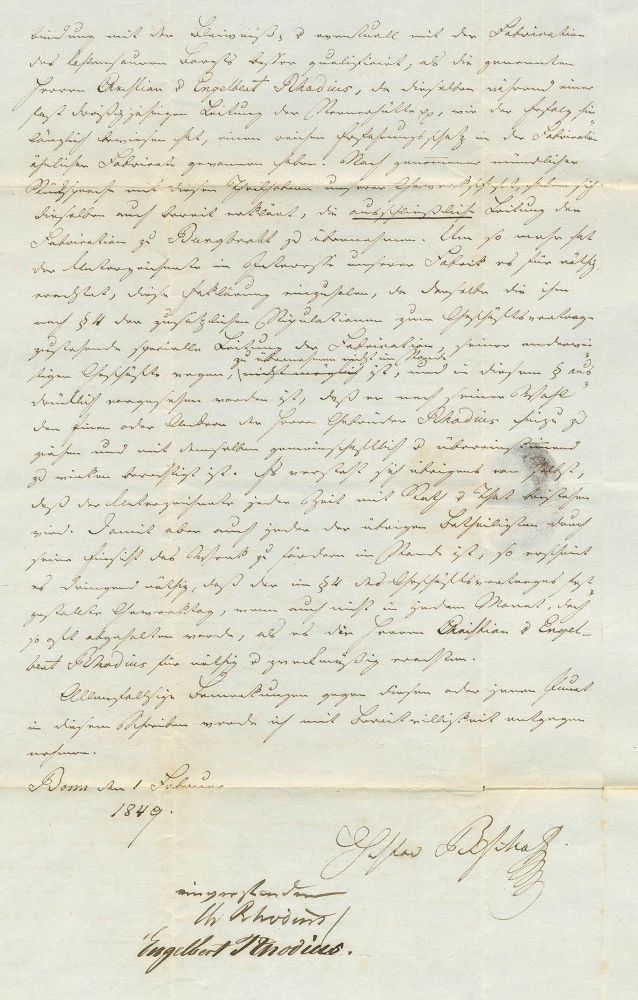 bindung mit der Bleiweiß- & eventuell mit der Fabrication
des kohlensauren Baryts besser qualificirt, als die genannten
Herren Christian & Engelbert Rhodius, da dieselben während einer
fast dreißigjährigen Leitung der Sternerhütte pp, wie der Erfolg hin-
länglich bewiesen hat, einen reichen Erfahrungsschatz in der Fabrication
ähnlicher Fabricate gewonnen haben. Nach genommener mündlicher
Rücksprache mit diesen Theilhabern unserer Gewerkschaft, haben sich
dieselben auch bereit erklärt, die ausschließliche Leitung der
Fabrication zu Burgbrohl zu übernehmen. Um so mehr hat
der Unterzeichnete im Interesse unserer Fabrik es für nöthig
erachtet, diese Erklärung einzuholen, da derselbe die ihm
nach § 4 der zusätzlichen Stipulationen zum Geschäftsvertrage
zustehende specielle Leitung der Fabrication, seiner anderwei-
zu übernehmen nicht im Stande
tigen Geschäfte wegen, nicht möglich ist, und in diesem § aus-
drücklich vorgesehen worden ist, daß er nach seiner Wahl
den Einen oder Andern der Herrn Gebrüder Rhodius hinzu zu
ziehen und mit demselben gemeinschaftlich & übereinstimmend
zu wirken berechtigt ist. Es versteht sich übrigens von selbst,
daß der Unterzeichnete jeder Zeit mit Rath & That beistehen
wird. Damit aber auch jeder der übrigen Betheiligten durch
seine Einsicht das Werk zu fördern im Stande ist, so erscheint
es dringend nöthig, daß der im § 4 des Geschäftsvertrages fest-
gestellte Gewerktag, wenn auch nicht in jedem Monat, doch
so oft abgehalten werde, als es die Herren Christian & Engel-
bert Rhodius für nöthig & zweckmäßig erachten.
Allenfallsige Bemerkungen gegen diesen oder jenen Punct
in diesem Schreiben werde ich mit Bereitwilligkeit entgegen
nehmen.
Bonn den 1 Februar
1849.
Gustav Bischof
einverstanden
Ch Rhodius
Engelbert Rhodius.